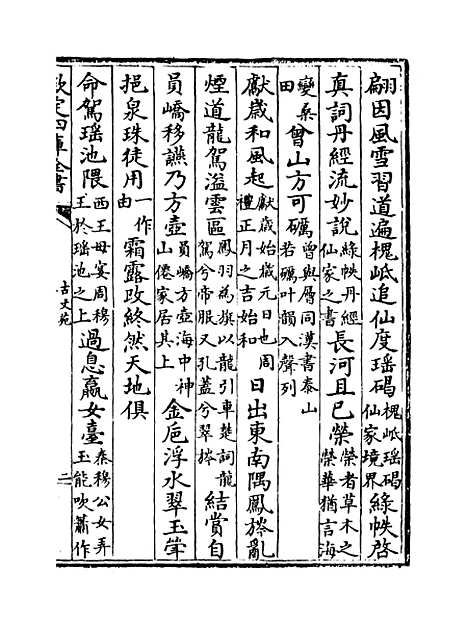 翩因風雪習道遍槐岻追仙度瑤碣槐岻瑤碣仙家境界綠帙啓
真詞丹經流妙說綠帙丹經仙家之書長河且已榮榮者草木之榮華猶言海
變桑田曾山方可礪曾與層同漢書泰山若礪叶韻入聲列
獻歲和風起獻歲始歲元日也周禮正月之吉始和日出東南隅鳳旍亂
煙道龍駕溢雲區鳳羽為旗以龍引車楚詞龍駕兮帝服又孔蓋兮翠旍結賞自
員嶠移讌乃方壺員嶠方壺海中神山僊家居其上金巵浮水翠玉斝
挹泉珠徒用一作由霜露改終然天地俱
命駕瑤池隈西王母宴周穆王於瑤池之上過息嬴女臺秦穆公女弄玉能吹簫作
欽定四庫全書
古文苑
二